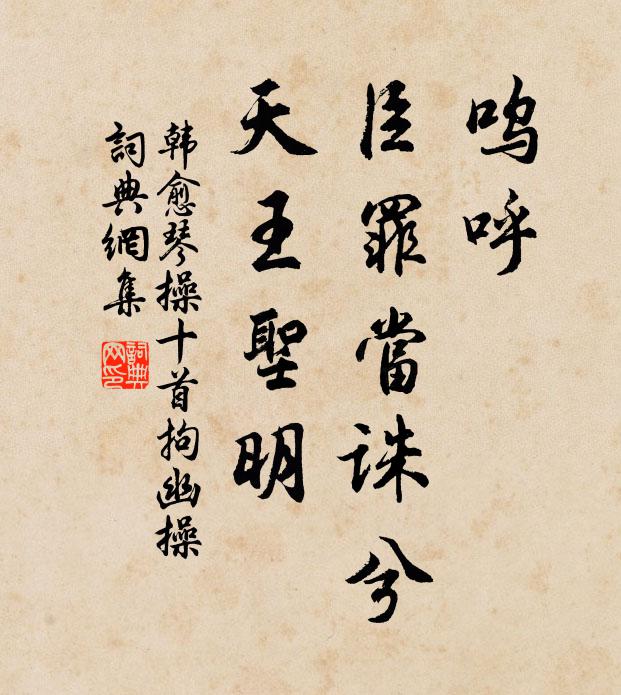 呜呼
臣罪當誅兮
天王聖明
韩愈琴操十首拘幽操
詞典網集
詞典
网印